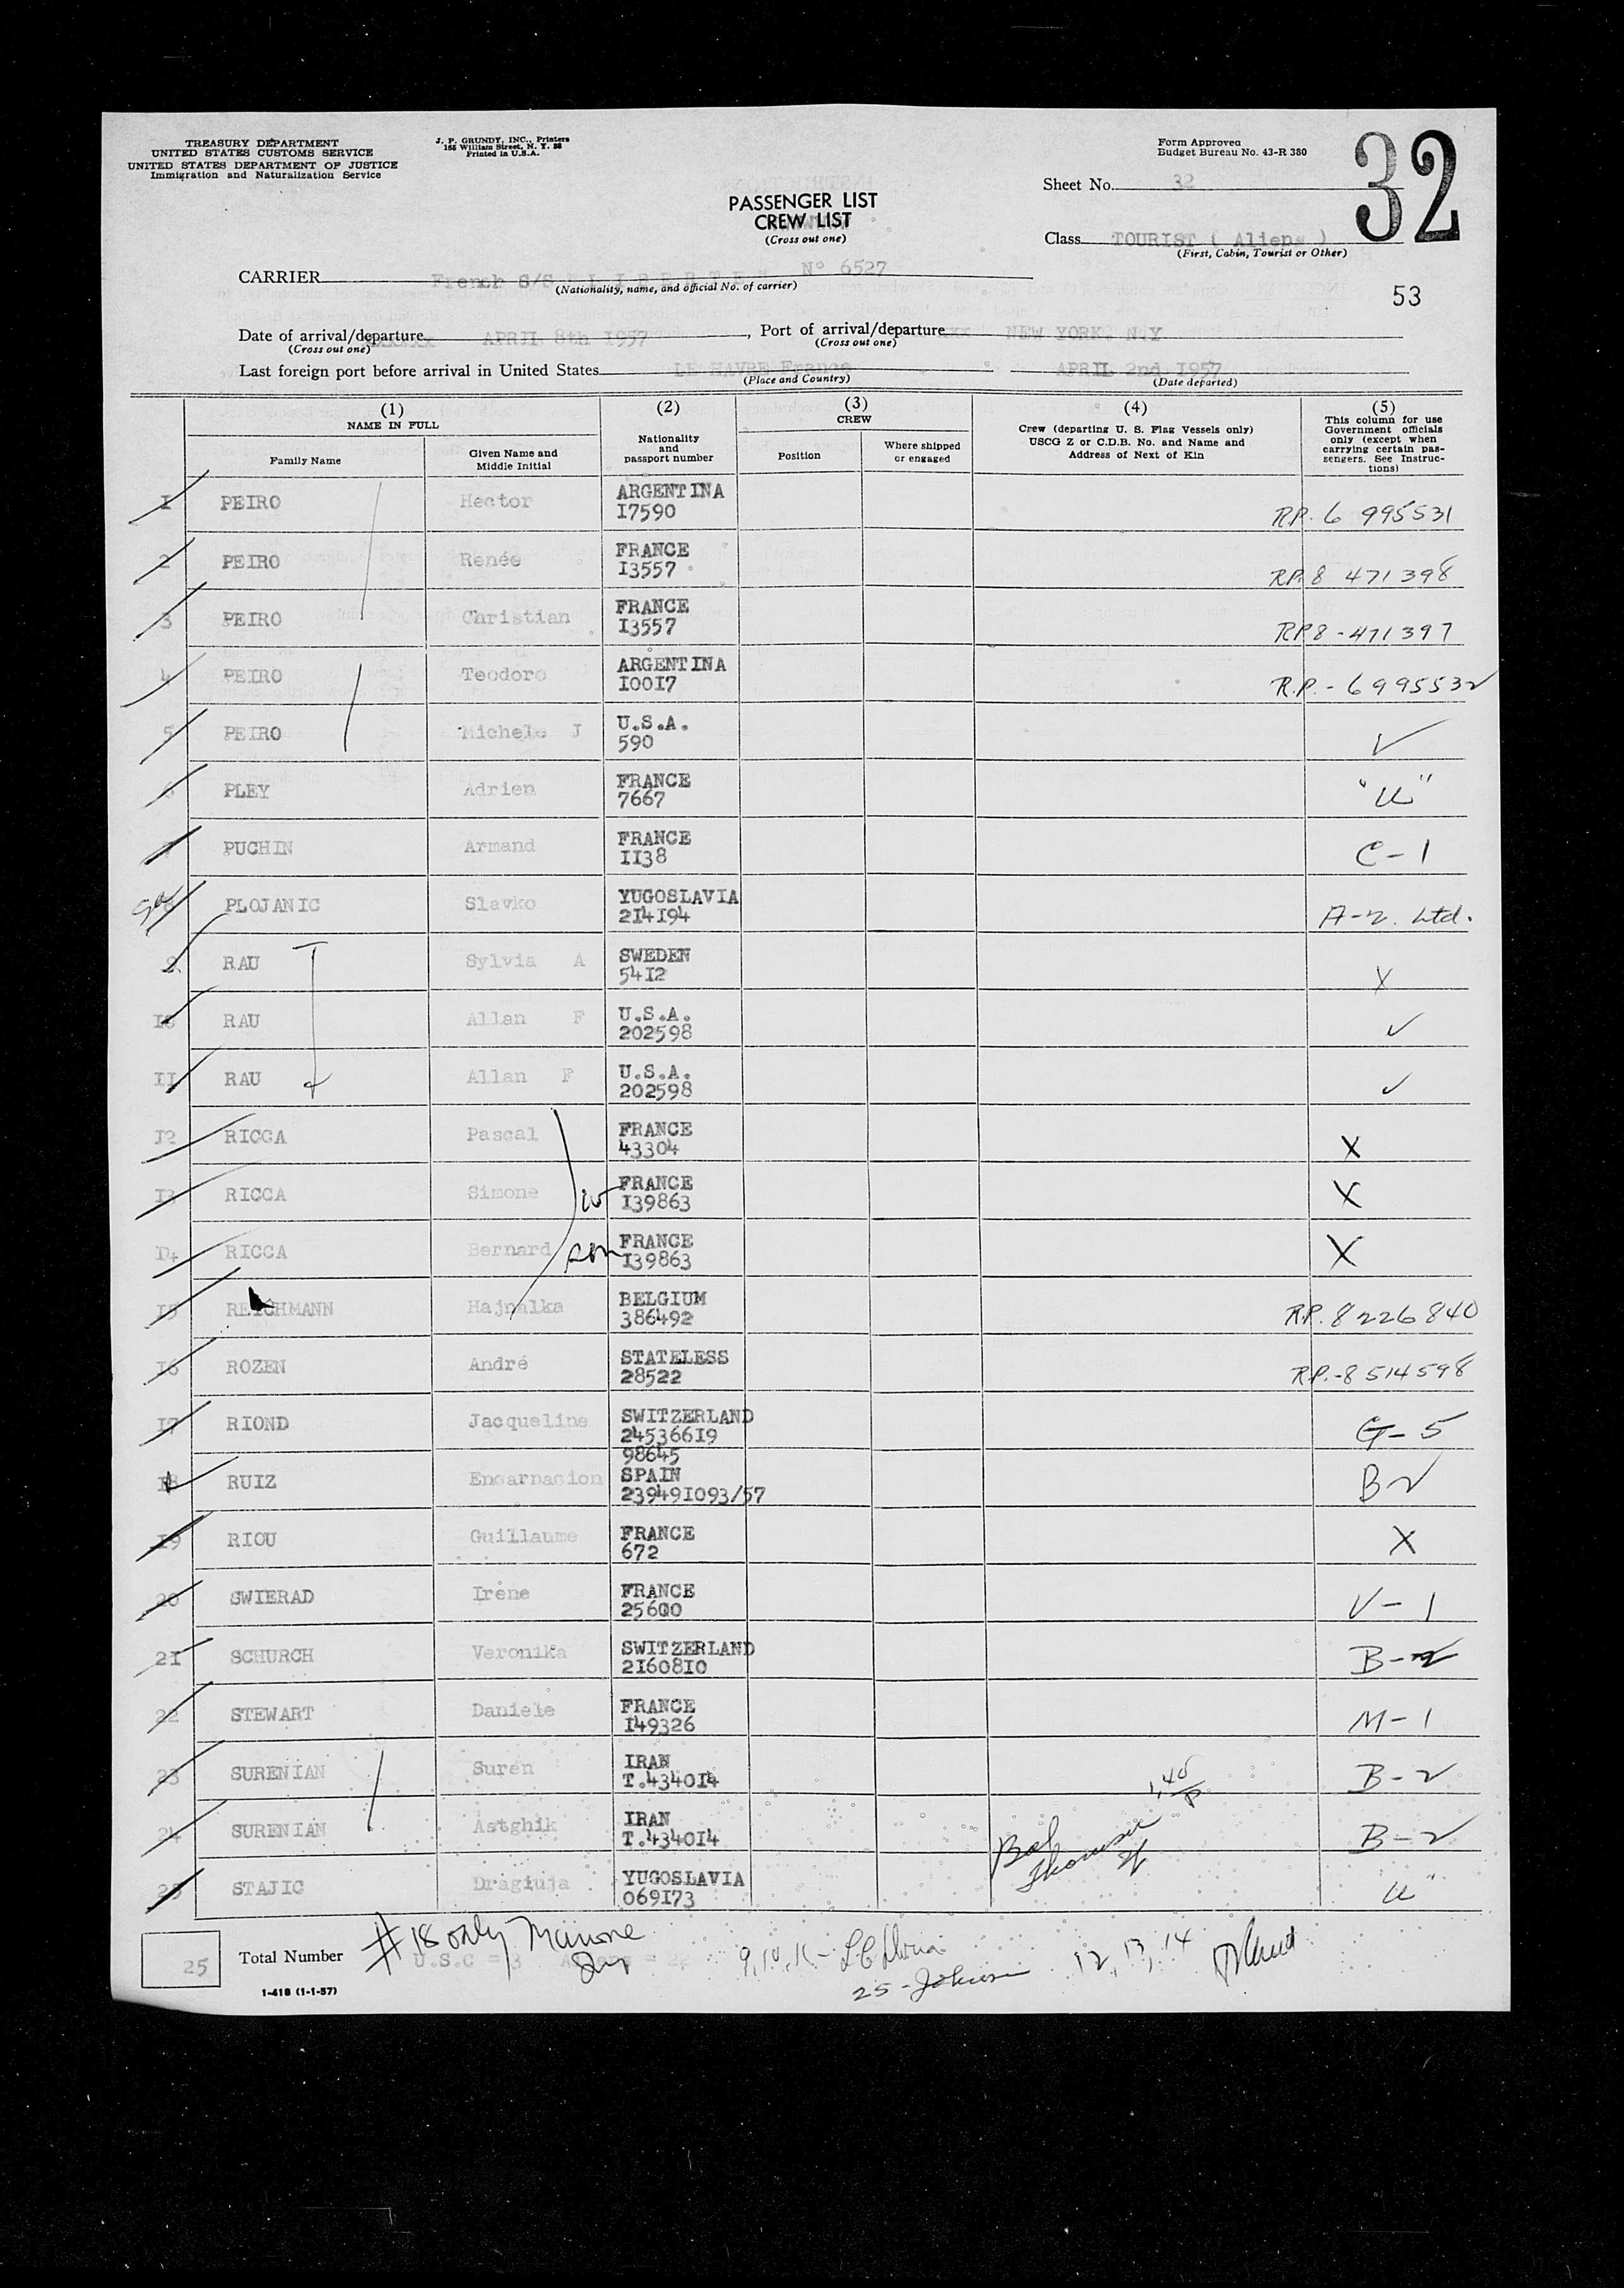 TREASURY DEPARTMENT
UNITED STATES CUSTOMS SERVICE
UNITED STATES DEPARTMENT OF JUSTICE
Immigration and Naturalization Service
J. P. GRUNDY, INC., Printers
165 William Street, N. Y. 38
Printed in U.S.A.
Form Approved
Budget Bureau No. 43-R 380
32
Sheet No. 32
PASSENGER LIST
CREW LIST
(Cross out one)
Class TOURIST ( Aliens )
(First, Cabin, Tourist or Other)
CARRIER French S/S " L I B E R T E " N° 6527
(Nationality, name, and official No. of carrier)
53
Date of arrival/departure APRIL 8th 1957, Port of arrival/departure NEW YORK, N.Y
(Cross out one) (Cross out one)
Last foreign port before arrival in United States LE HAVRE France APRIL 2nd 1957
(Place and Country) (Date departed)
(1) NAME IN FULL
Family Name
Given Name and Middle Initial
(2)
Nationality and passport number
(3) CREW
Position
Where shipped or engaged
(4)
Crew (departing U. S. Flag Vessels only)
USCG Z or C.D.B. No. and Name and
Address of Next of Kin
(5)
This column for use
Government officials
only (except when
carrying certain pas-
sengers. See Instruc-
tions)
I PEIRO Hector ARGENTINA I7590 R.P. 6 995531
2 PEIRO Renée FRANCE I3557 R.P. 8 471398
3 PEIRO Christian FRANCE I3557 R.P. 8-471397
4 PEIRO Teodoro ARGENTINA I00I7 R.P. - 6995532
5 PEIRO Michele J U.S.A. 590 ✓
6 PLEY Adrien FRANCE 7667
7 PUCHIN Armand FRANCE II38 C-1
8 PLOJANIC Slavko YUGOSLAVIA 2I4I94 A-2. Ltd.
9 RAU Sylvia A SWEDEN 54I2 X
I0 RAU Allan F U.S.A. 202598 ✓
II RAU Allan F U.S.A. 202598 ✓
I2 RICCA Pascal FRANCE 43304 X
I3 RICCA Simone w FRANCE I39863 X
I4 RICCA Bernard son FRANCE I39863 X
I5 REICHMANN Hajnalka BELGIUM 386492 R.P. 8226840
I6 ROZEN André STATELESS 28522 R.P.-8514598
I7 RIOND Jacqueline SWITZERLAND 245366I9 G-5
98645
I8 RUIZ Encarnacion SPAIN 23949I093/57 B2
I9 RIOU Guillaume FRANCE 672 X
20 SWIERAD Irène FRANCE 25600 V-1
2I SCHURCH Veronika SWITZERLAND 2I608I0 B-2
22 STEWART Daniele FRANCE I49326 M-1
23 SURENIAN Suren IRAN T.4340I4 B-2
24 SURENIAN Astghik IRAN T.4340I4 B-2
25 STAJIC Dragiuja YUGOSLAVIA 069I73
25 Total Number U.S.C = 3 Aliens = 22
#18 only
9, 10, 11 -
25 - Johnson
12, 13, 14
1-418 (1-1-57)